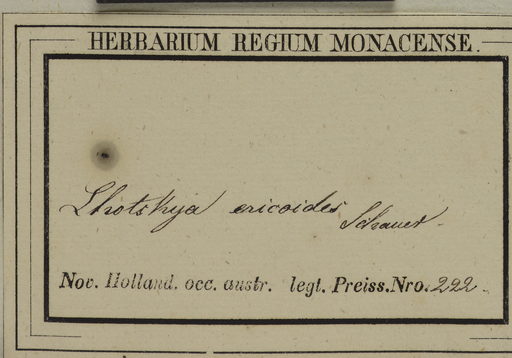 HERBARIUM REGIUM MONACENSE.
Lhotskya ericoides Schauer.
Nov. Holland. occ. austr. legt. Preiss. Nro. 222.